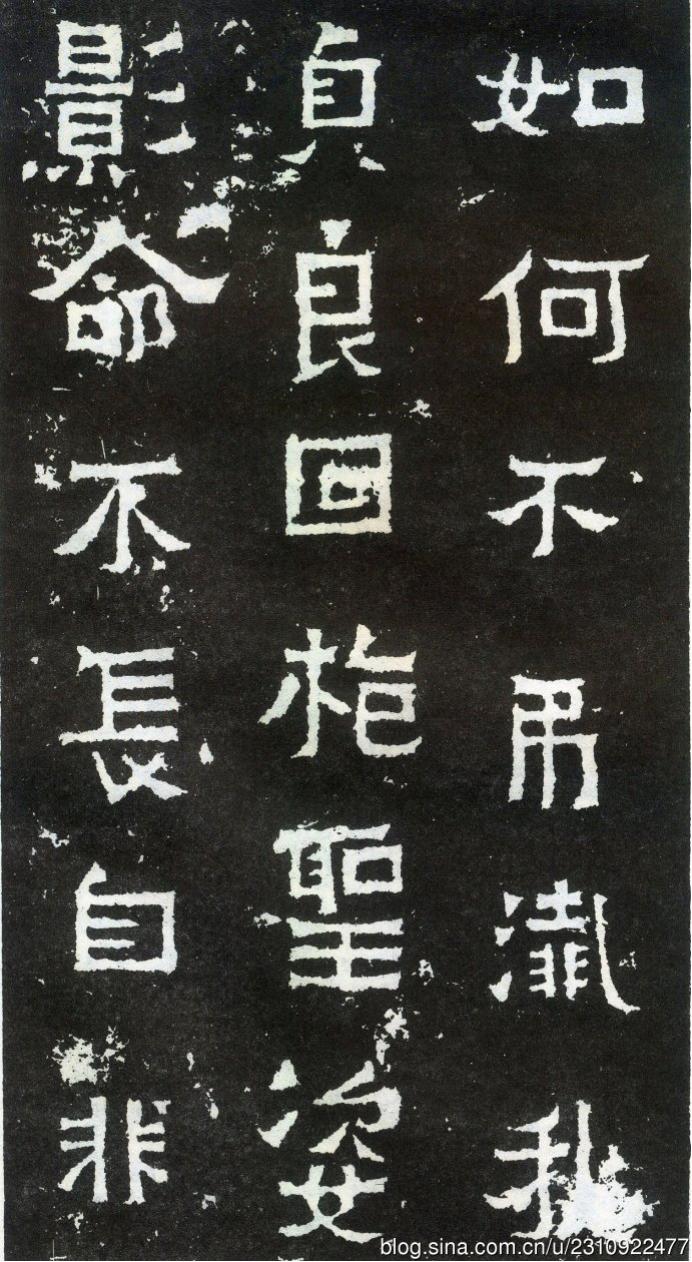 如何不弔瀸我
貞良回枹聖姿
影命不長自非
blog.sina.com.cn/u/2310922477